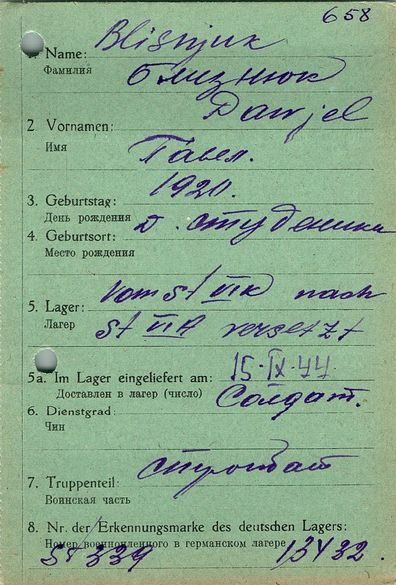 658
Blisnjuk
1 Name:
Фамилия
Близнюк
Dawjel
2 Vornamen:
Имя
Павел.
1920.
3. Geburtstag:
День рождения
д. студеники
4. Geburtsort:
Место рождения
vom St VI K nach
5. Lager:
Лагер
St VI A versetzt
5a. Im Lager eingeliefert am: 15·IX·44
Доставлен в лагер (число)
Солдат.
6. Dienstgrad:
Чин
стройбат
7. Truppenteil:
Воинская часть
8. Nr. der Erkennungsmarke des deutschen Lagers:
Номер военнопленного в германском лагере
St 339 13432